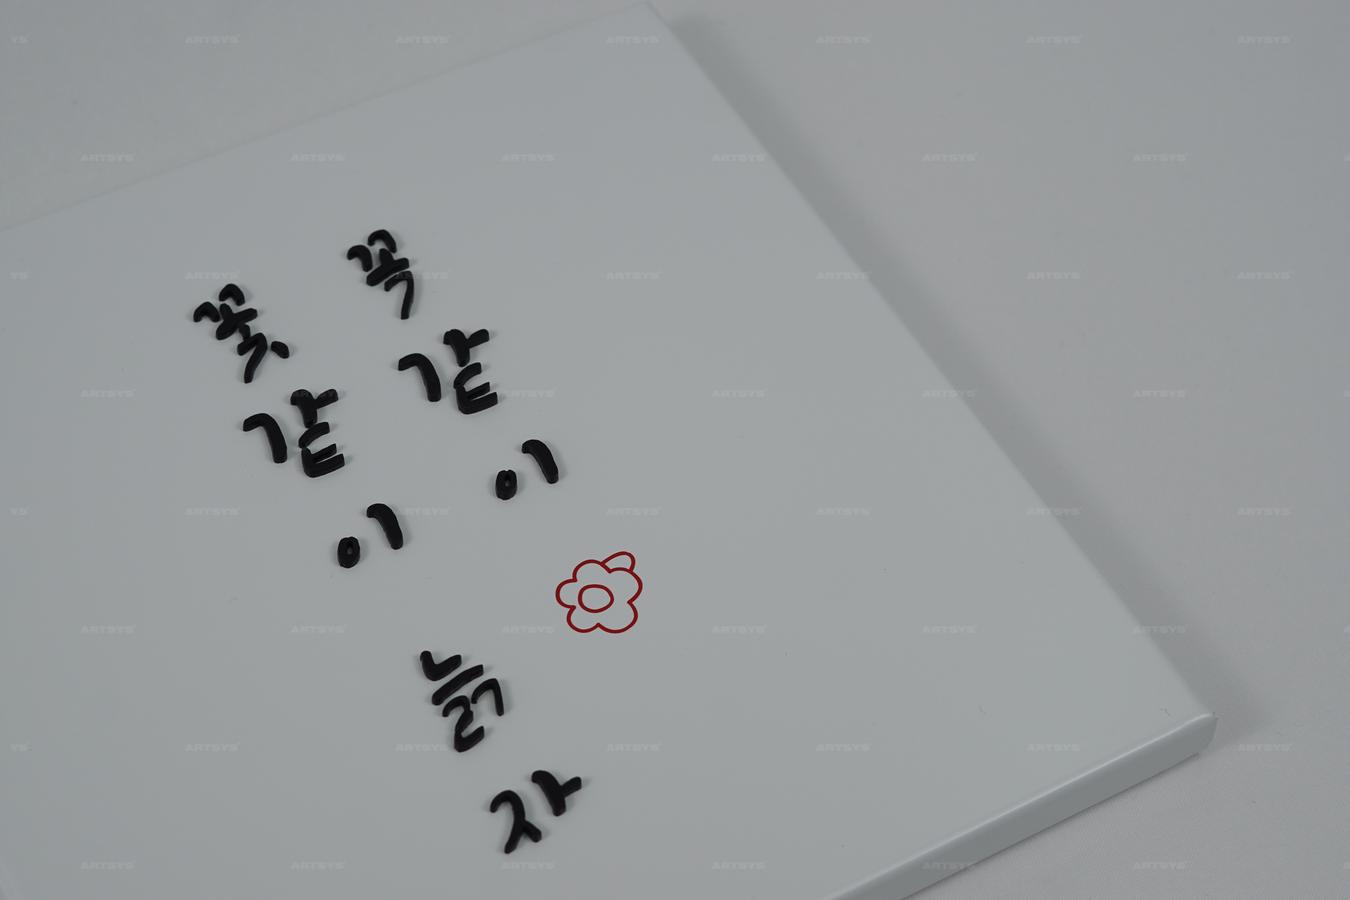 꼭같이
꽃같이 늙자
ARTSYS